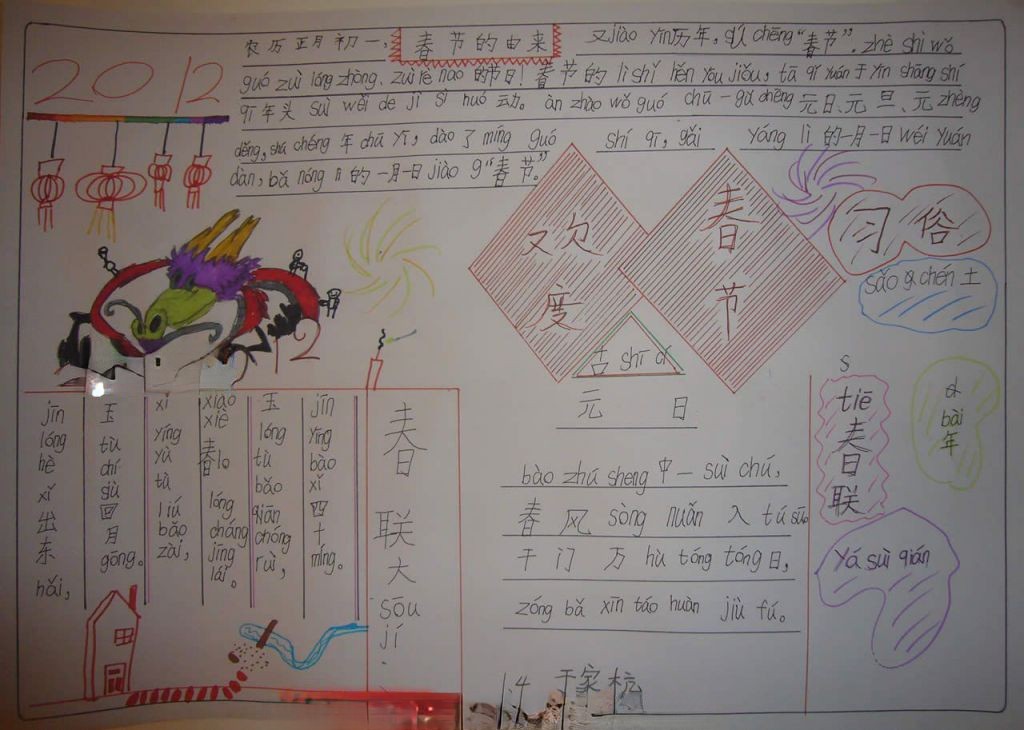 2012
春节的由来
农历正月初一,
又jiào yīn历年,sú chēng“春节”.zhè shì wǒ
guó zuì lóng zhòng、zuì rè nao 的节日!春节的lì shǐ hěn yōu jiǔ,tā qǐ yuán于yīn shāng shí
qī年头 suì wěi de jì sì huó 动。àn zhào wǒ guó
元日、元旦、元zhèng
děng,sú chéng 年 chū yī,dào 了 míng guó shí qī,gǎi yáng lì 的一月一日wéi yuán
dàn,bǎ nóng lì 的一月一日jiào “春节”。
欢度
春节
习俗
sǎo chén 土
古 shī cí
元日
bào zhú sheng 中一 suì chú,
春风 sòng nuǎn 入 tú sū
千门万 hù tóng tóng 日,
zóng bǎ xīn táo huàn jiù fú。
tiē
春
联
bài
年
Yá suì qián
12
春联大 sōu jí
jīn lóng hè xǐ 出东 hǎi,
玉 tù chí sù 四月 gōng。
xǐ yíng yù tù liú bǎo zài,
xiào xiè 春 lóng cháng jīng lái。
玉 lóng tù bǎo qián chóng ruì,
jīn yíng bào xǐ 四十 míng。
1.4 于家杭